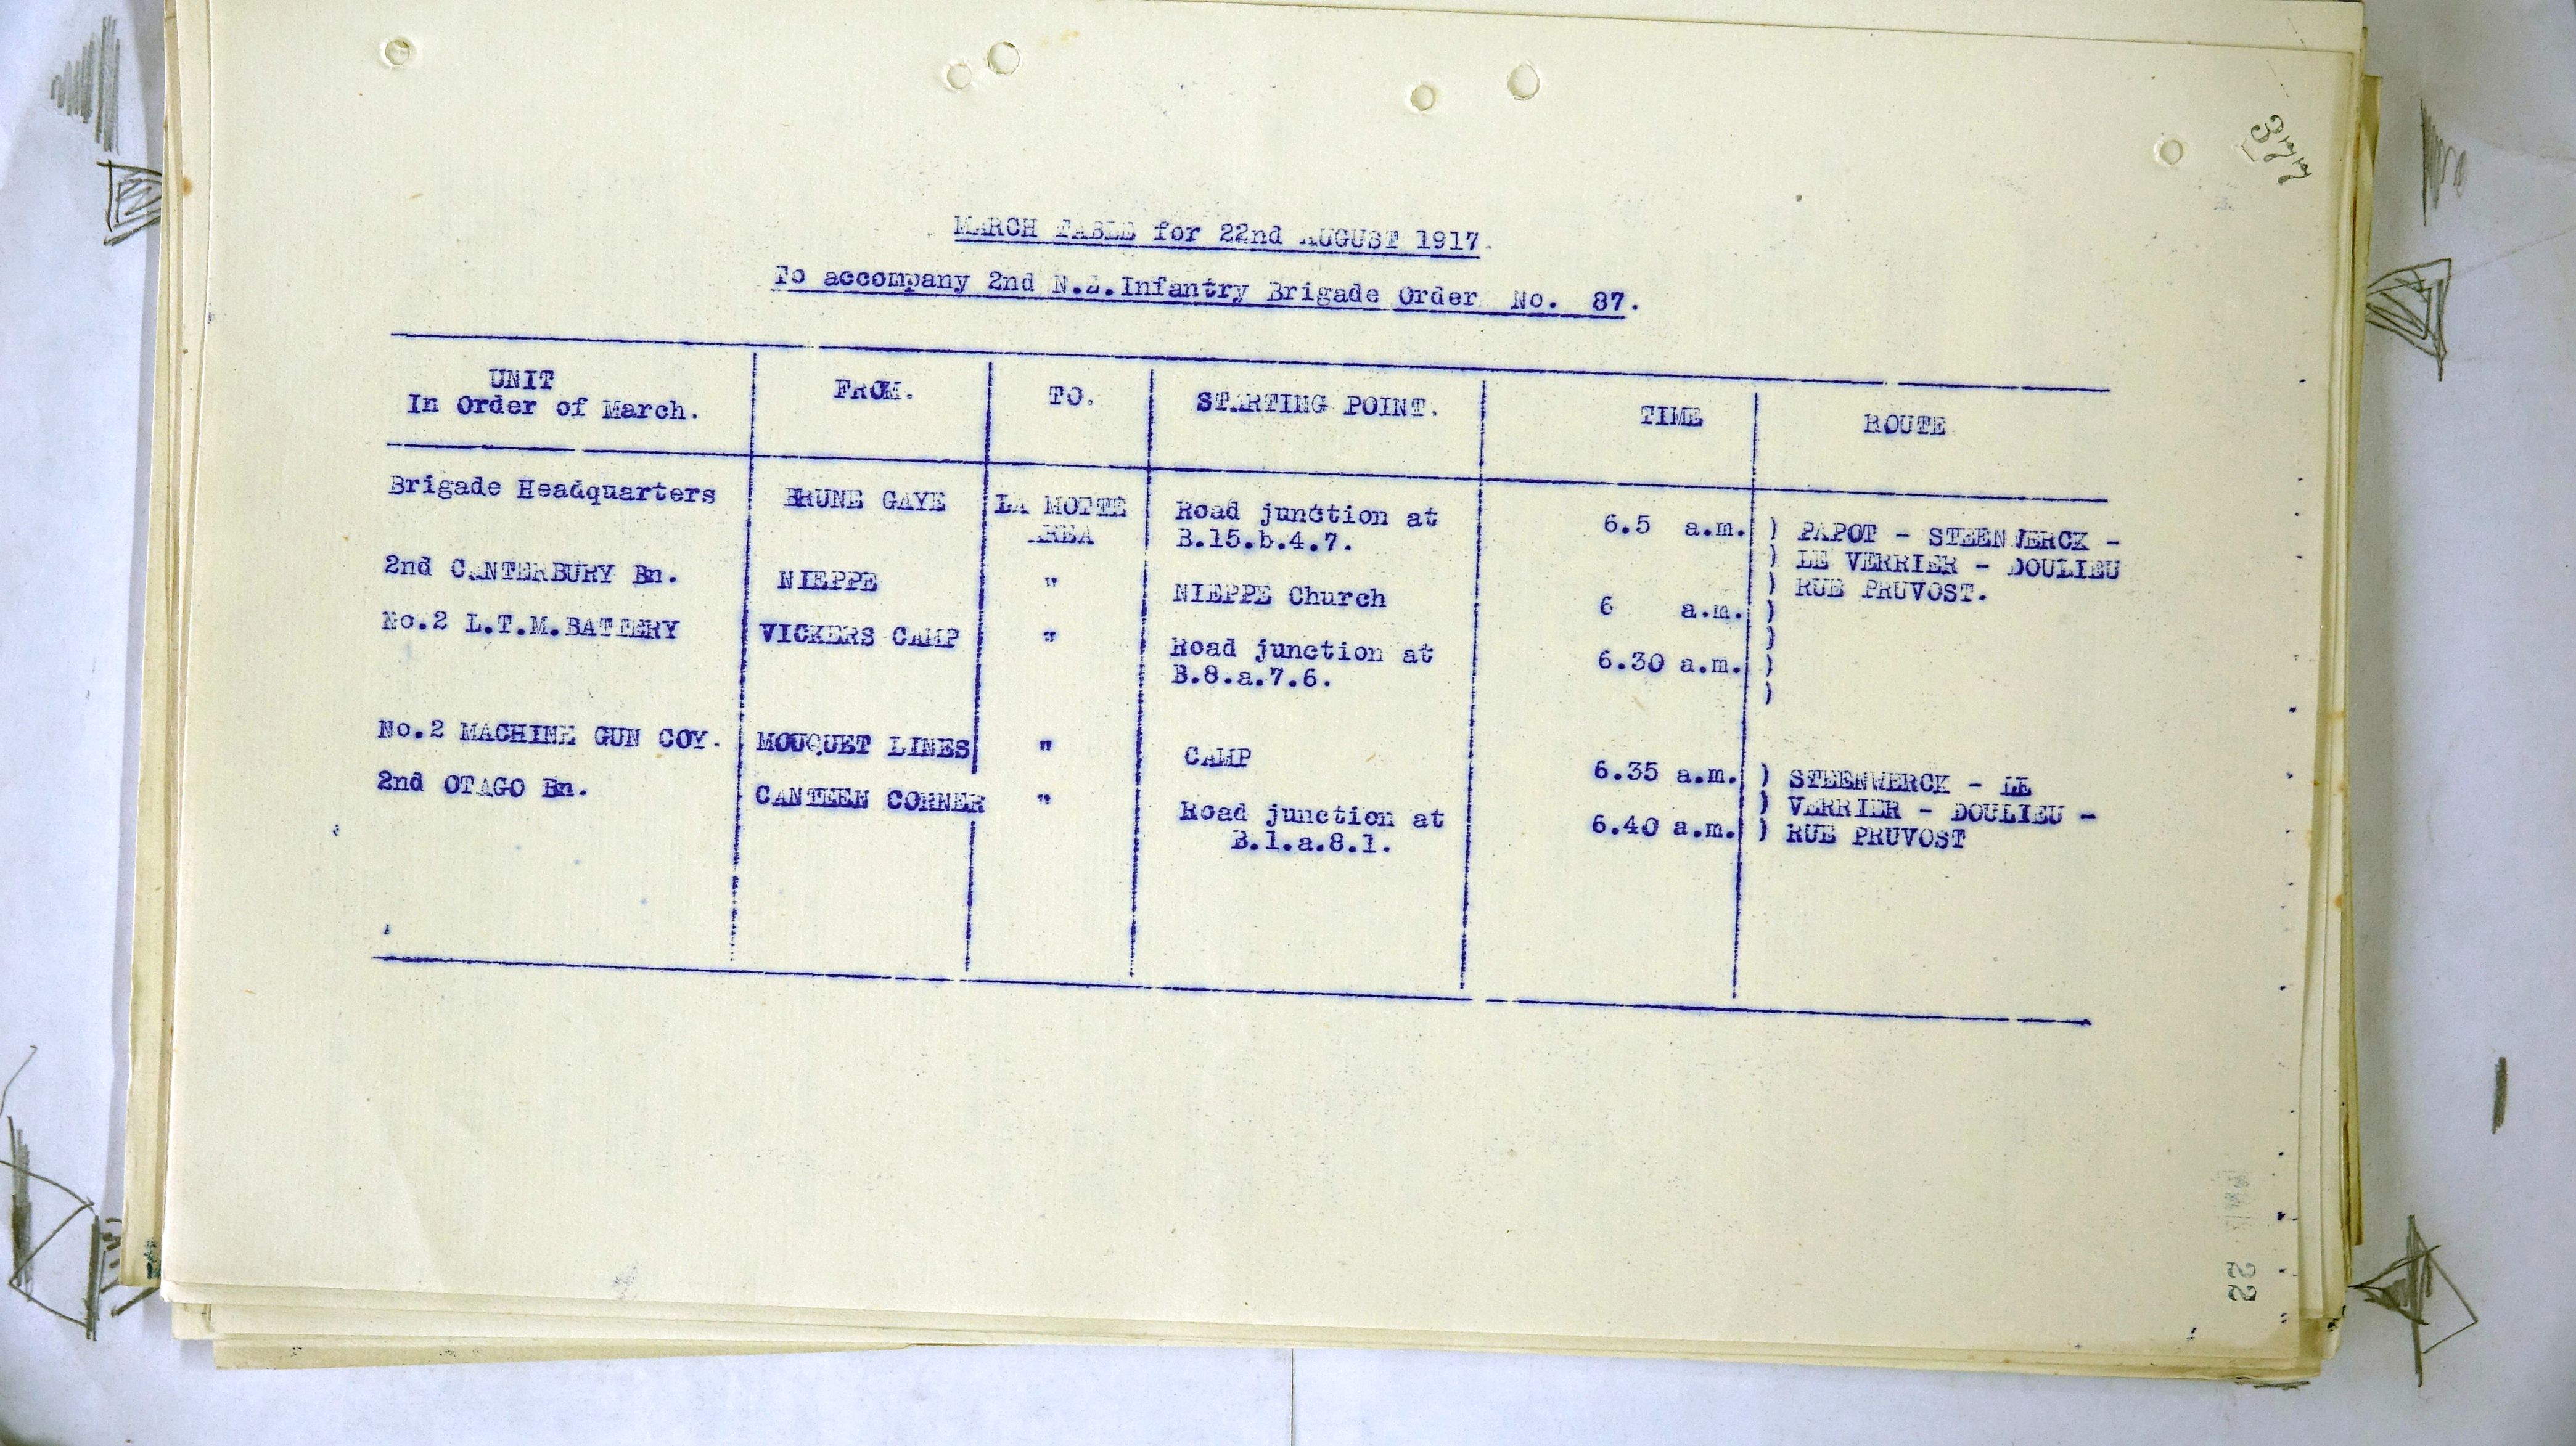 377
MARCH TABLE for 22nd AUGUST 1917.
To accompany 2nd N.Z.Infantry Brigade Order No. 87.
UNIT
In Order of March.
FROM.
TO.
STARTING POINT.
TIME
ROUTE
Brigade Headquarters
BRUNE GAYE
LA MOTTE
AREA
Road junction at
B.15.b.4.7.
6.5 a.m. )
PAPOT - STEENWERCK -
LE VERRIER - DOULIEU
RUE PRUVOST.
2nd CANTERBURY Bn.
NIEPPE
"
NIEPPE Church
6 a.m. )
No.2 L.T.M.BATTERY
VICKERS CAMP
"
Road junction at
B.8.a.7.6.
6.30 a.m. )
No.2 MACHINE GUN COY.
MOUQUET LINES
"
CAMP
6.35 a.m. )
STEENWERCK - LE
VERRIER - DOULIEU -
RUE PRUVOST
2nd OTAGO Bn.
CANTEEN CORNER
"
Road junction at
B.1.a.8.1.
6.40 a.m. )
22